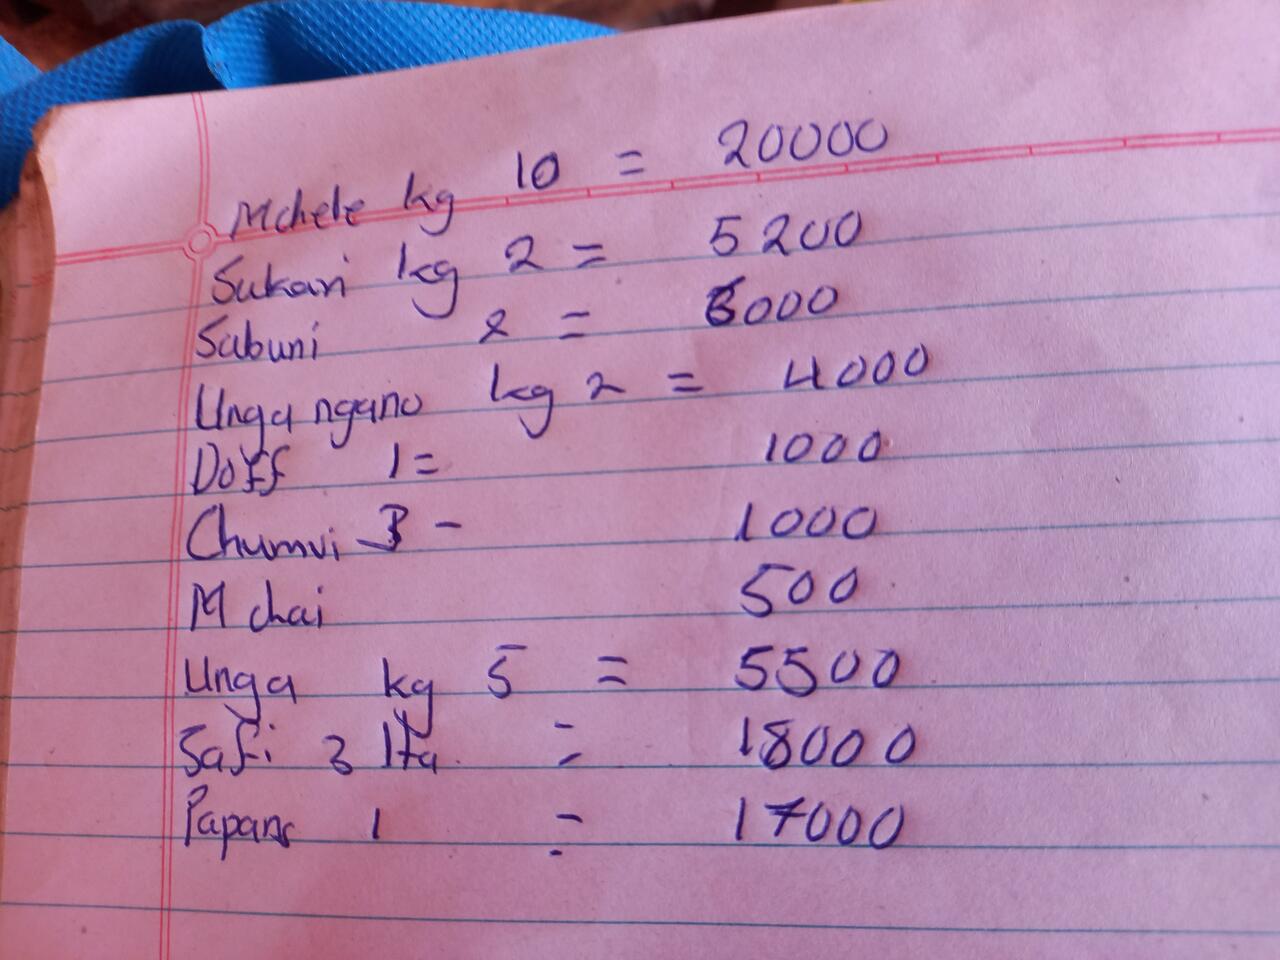 Mchele kg 10 = 20000
Sukari kg 2 = 5200
Sabuni 2 = 6000
Unga ngano kg 2 = 4000
Doff 1 = 1000
Chumvi 3 - 1000
M chai 500
Unga kg 5 = 5500
Safi 3 lta = 18000
1 = 17000